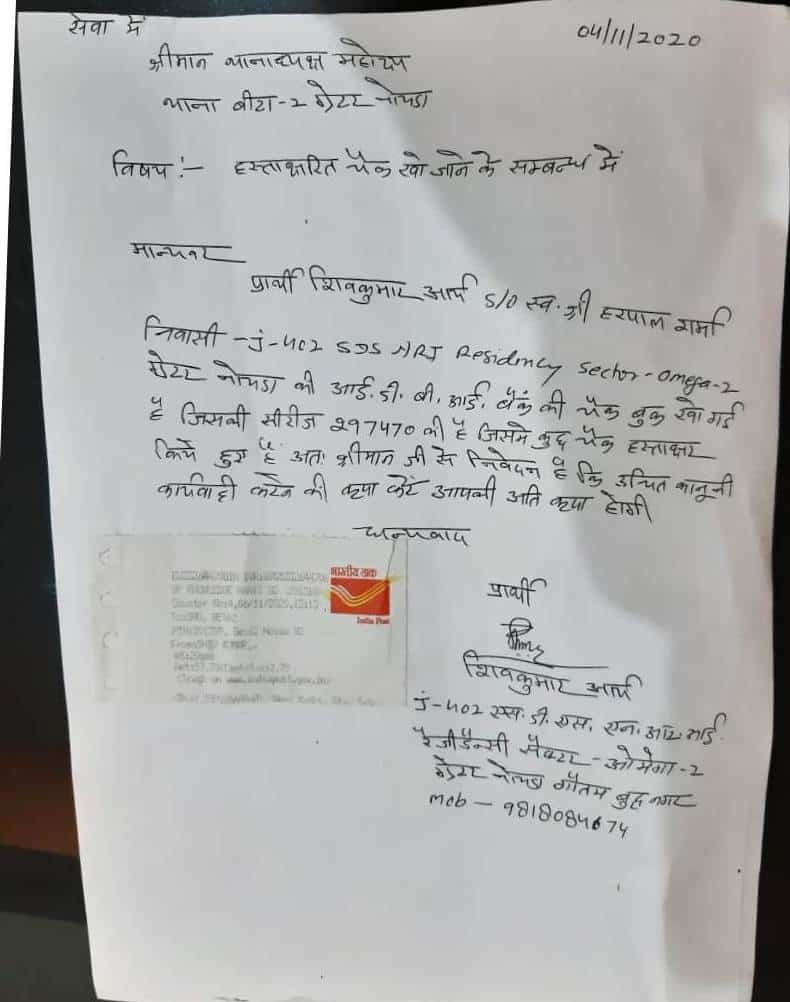 सेवा में
04/11/2020
श्रीमान थानाध्यक्ष महोदय
थाना बीटा-2 ग्रेटर नोयडा
विषय :- हस्ताक्षरित चैक खो जाने के सम्बन्ध में
मान्यवर
प्रार्थी शिवकुमार आर्य S/O स्व. श्री हरपाल शर्मा
निवासी - J-402 SDS NRI Residency Sector-Omega-2
ग्रेटर नोयडा की आई. डी. बी. आई. बैंक की चैक बुक खो गई
है जिसकी सीरीज 297470 की है जिसमे कुछ चैक हस्ताक्षर
किये हुए हैं अतः श्रीमान जी से निवेदन है कि उचित कानूनी
कार्यवाही करने की कृपा करें आपकी अति कृपा होगी
धन्यवाद
भारतीय डाक
India Post
Counter No:4,06/11/2020,12:13
प्रार्थी
शिवकुमार आर्य
J-402 एस. डी. एस. एन. आर आई.
रैजीडैन्सी सैक्टर - ओमेगा-2
ग्रेटर नोयडा गौतम बुद्ध नगर
mob - 9818084674